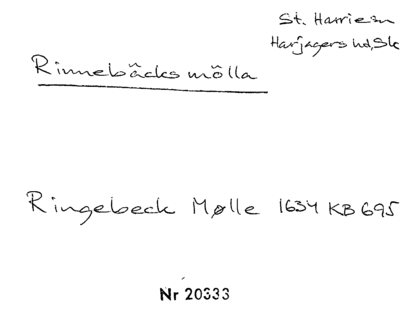 St. Harriesn
Harjagers hd, Sk
Rinnebäcks mölla
Ringebeck Mølle 1634 KB 695
Nr 20333